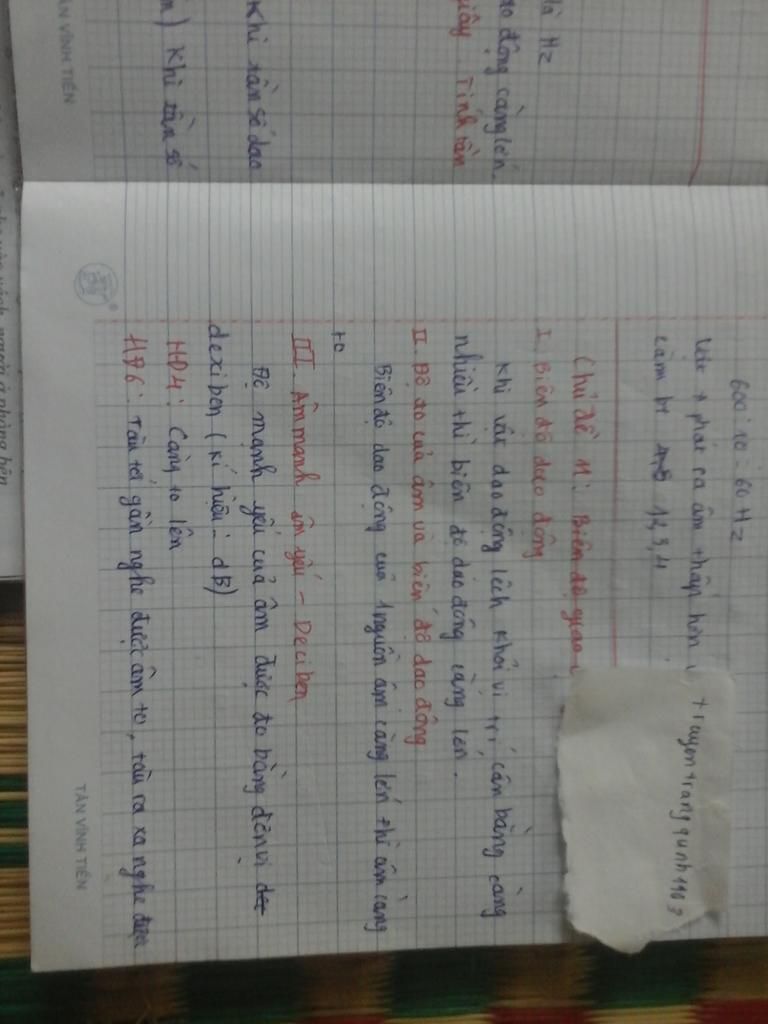 là Hz
ao động càng lớn.
giây. Tính tần
Khi tần số dao
Khi tần số
TÂN VĨNH TIẾN
600 : 10 = 60 Hz
Vật phát ra âm thấp hơn
cảm bt 12,3,4
truyentrangquynh1903
Chủ đề 11: Biên độ giao
I. Biên độ dao động
Khi vật dao động lệch khỏi vị trí cân bằng càng
nhiều thì biên độ dao động càng lớn.
II. Độ to của âm và biên độ dao động
Biên độ dao động của 1 nguồn âm càng lớn thì âm càng
to
III Âm mạnh âm yếu - Deciben
Độ mạnh yếu của âm được đo bằng đơn vị
dexiben (kí hiệu: dB)
HĐ4: Càng to lên
HĐ6: Tàu tới gần nghe được âm to, tàu ra xa nghe được
TÂN VĨNH TIẾN